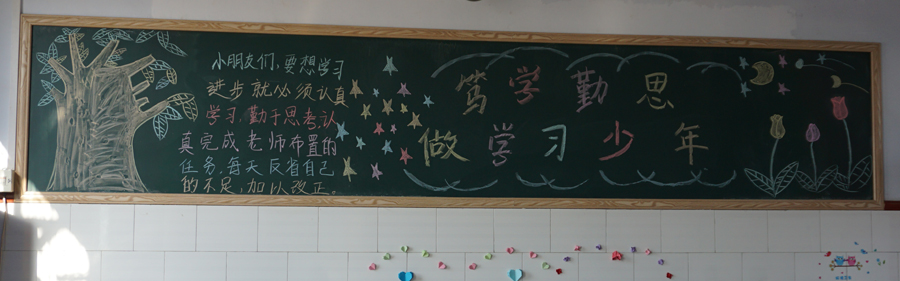 小朋友们,要想学习
进步就必须认真
学习,勤于思考,认
真完成老师布置的
任务,每天反省自己
的不足,加以改正。
笃学勤思
做学习少年